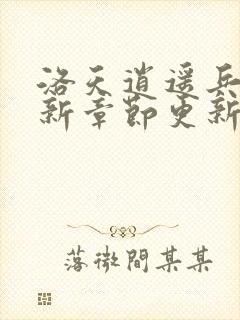 洛天逍遥兵
新章节更新
落微間某某